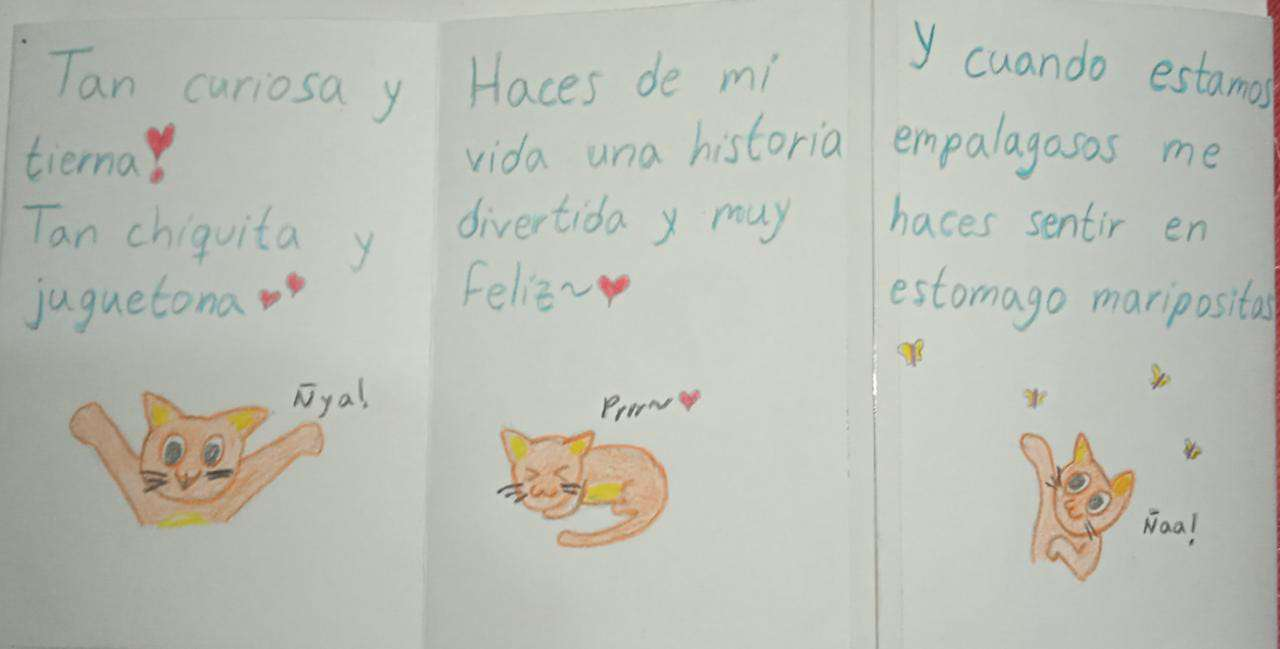 Tan curiosa y
tierna!
Tan chiquita y
juguetona
Ñya!
Haces de mi
vida una historia
divertida y muy
feliz~
Prrr~
Y cuando estamos
empalagosos me
haces sentir en
estomago maripositas
Ñaa!